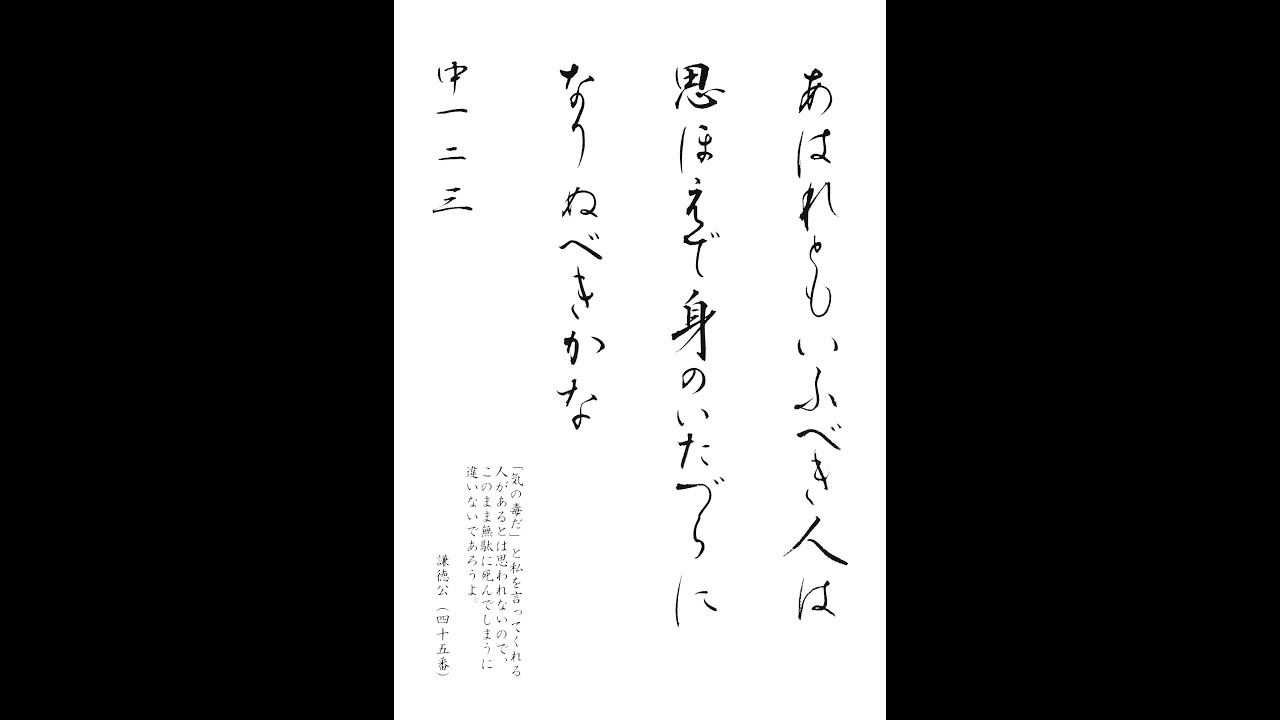 あはれともいふべき人は
思ほえで身のいたづらに
なりぬべきかな
中一二三
「気の毒だ」と私を言ってくれる
人があるとは思われないので、
このまま無駄に死んでしまうに
違いないであろうよ。
謙徳公（四十五番）